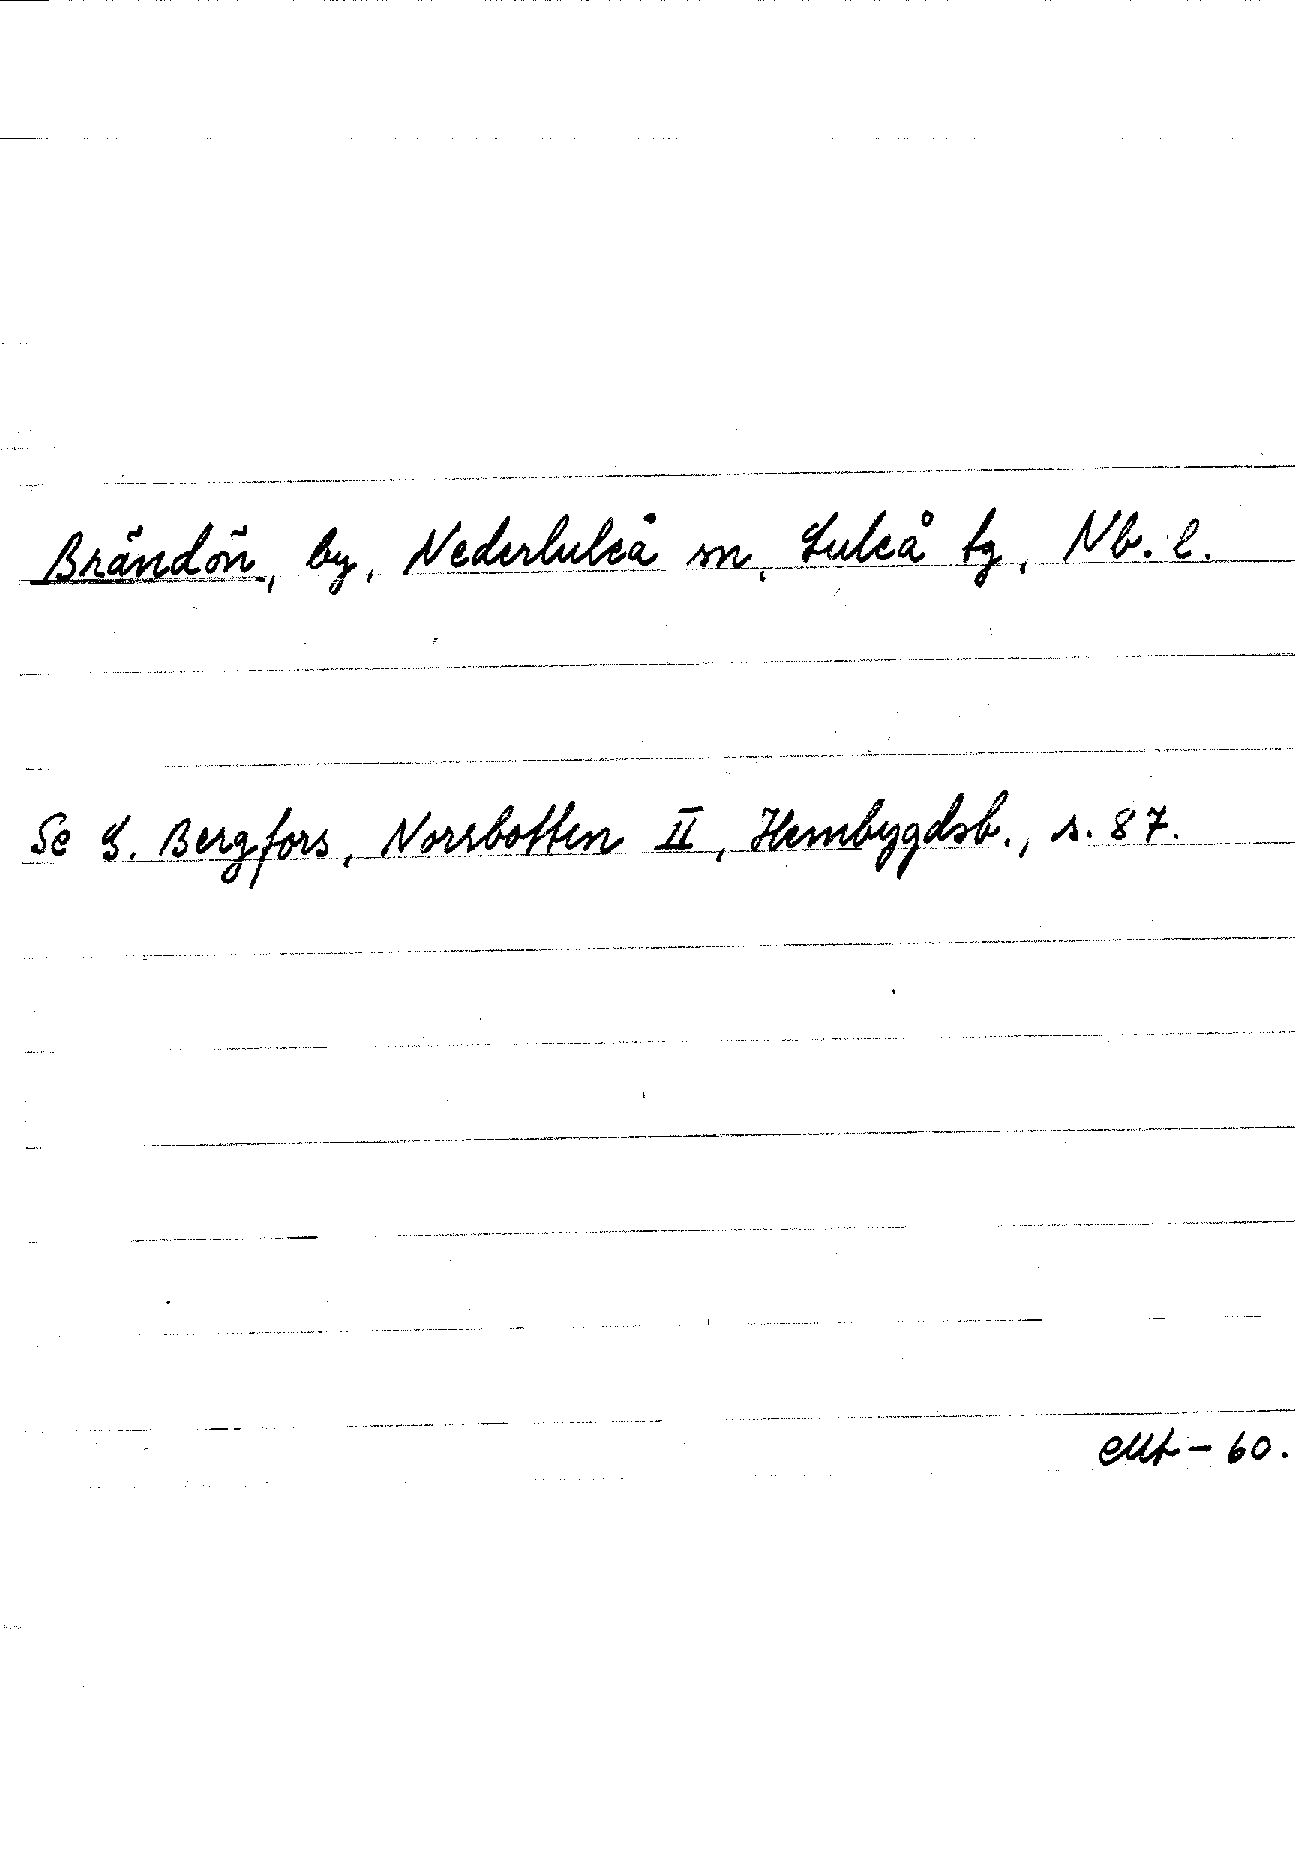 Brändön, by, Nederluleå sn, Luleå tg, Nb. l.
Se G. Bergfors, Norrbotten II, Hembygdsb., s. 87.
- 60.